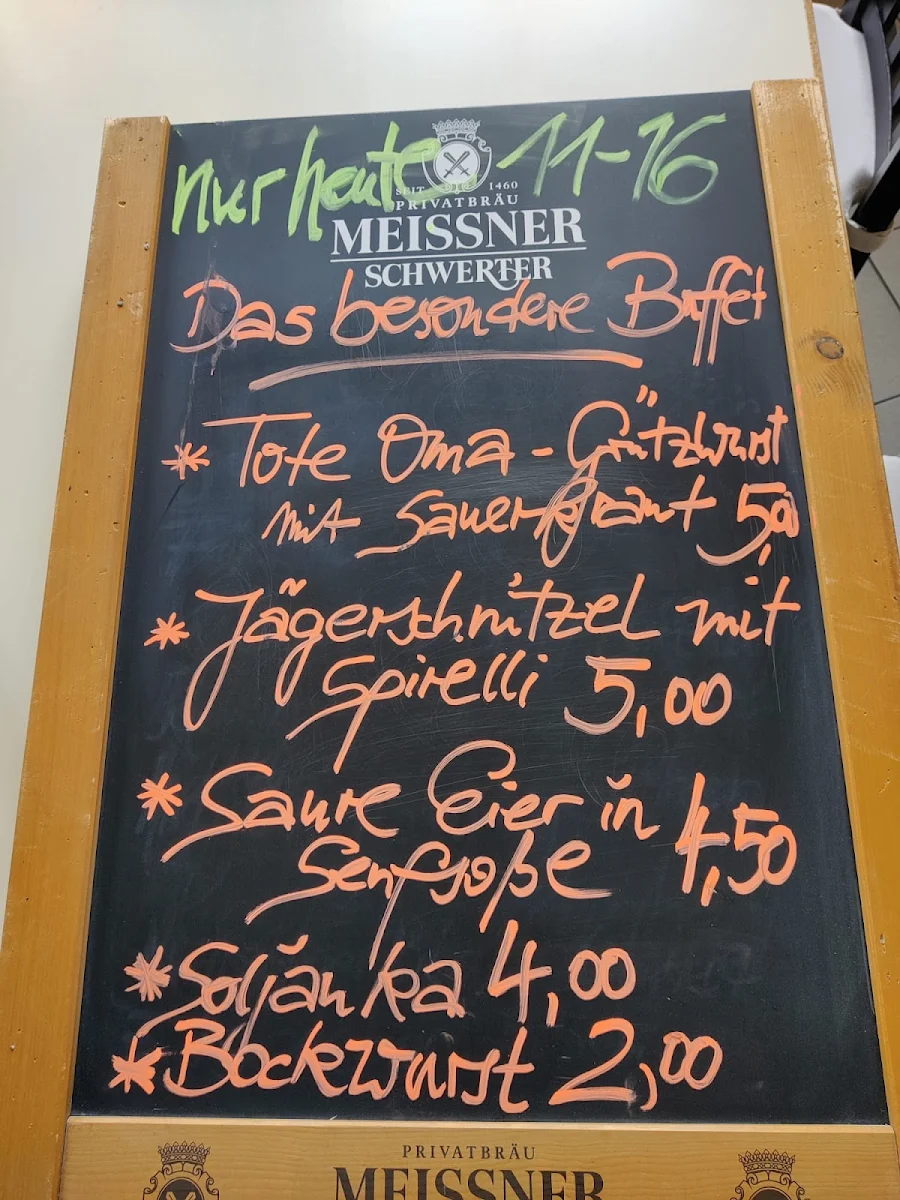 nur heute 11-16
SEIT 1460
PRIVATBRÄU
MEISSNER
SCHWERTER
Das besondere Buffet
* Tote Oma - Grützwurst
mit Sauerkraut 5,00
* Jägerschnitzel mit
Spirelli 5,00
* Saure Eier in
Senfsoße 4,50
* Soljanka 4,00
* Bockwurst 2,00
PRIVATBRÄU
MEISSNER